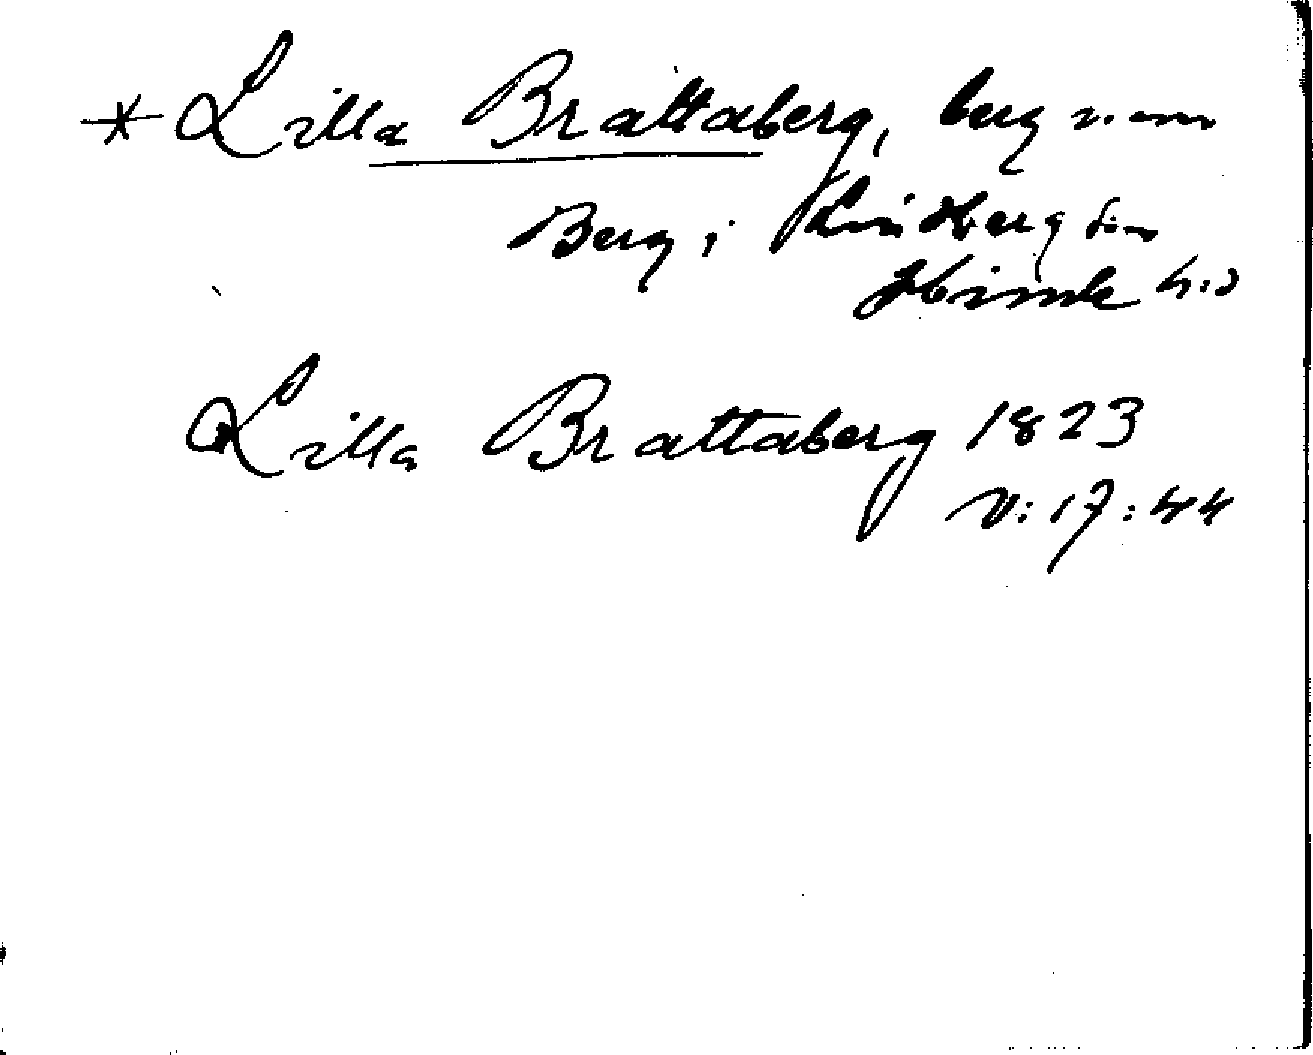 * Lilla Brattaberg, berg n. om
Berg i Lindberg sn
Himle hd
Lilla Brattaberg 1823
V:17:44